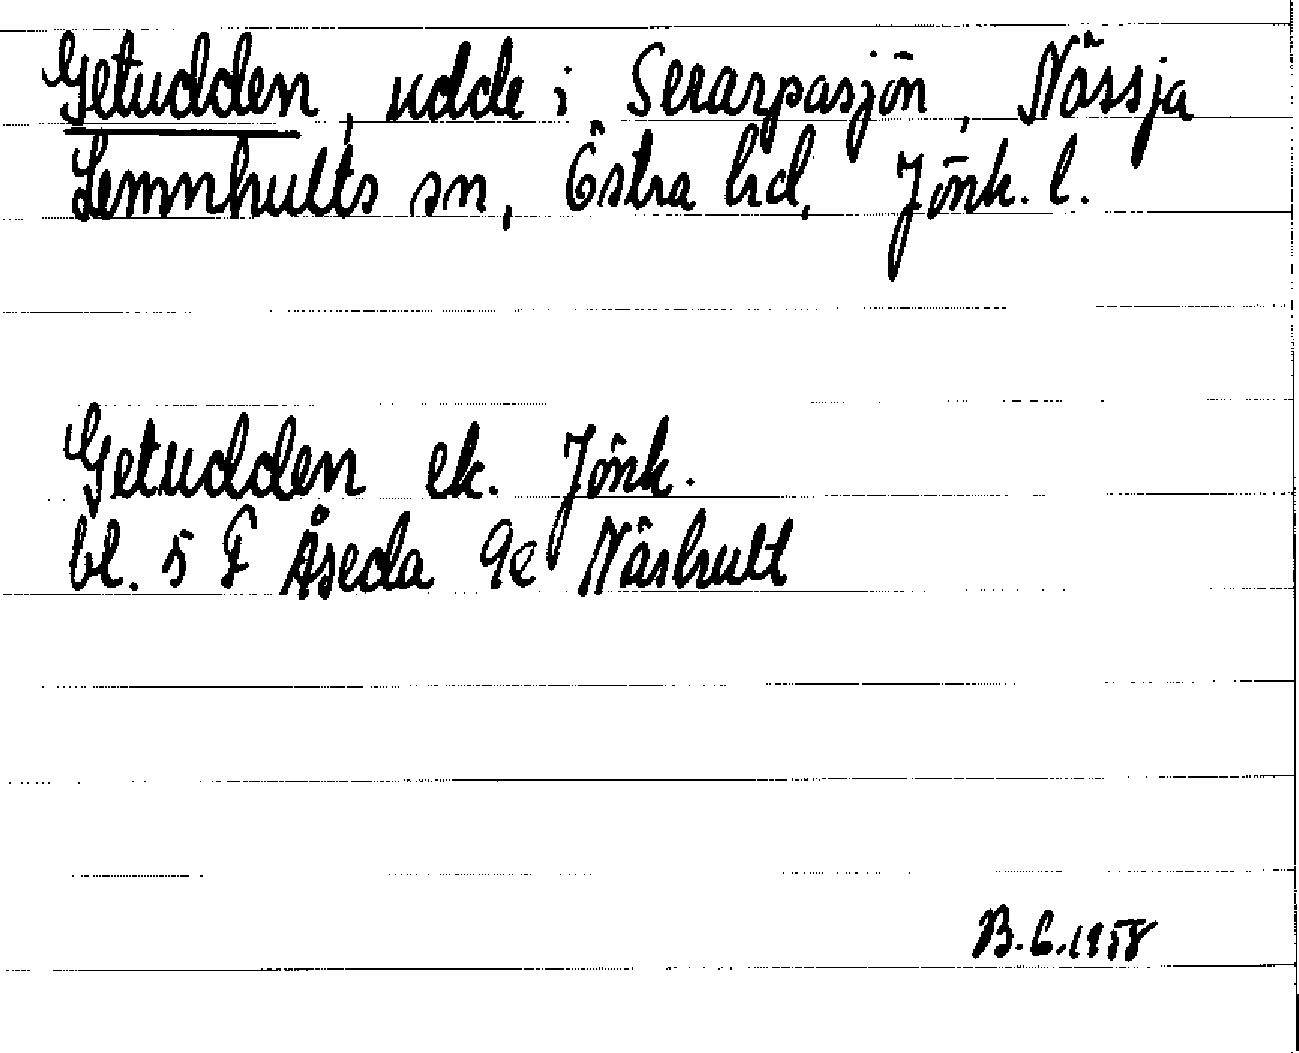 Getudden, udde i Serarpasjön, Nässja
Lemnhults sn, Östra hd, Jönk. l.
Getudden ek. Jönk.
bl. 5 F Åseda 9e Näshult
B.G.1958